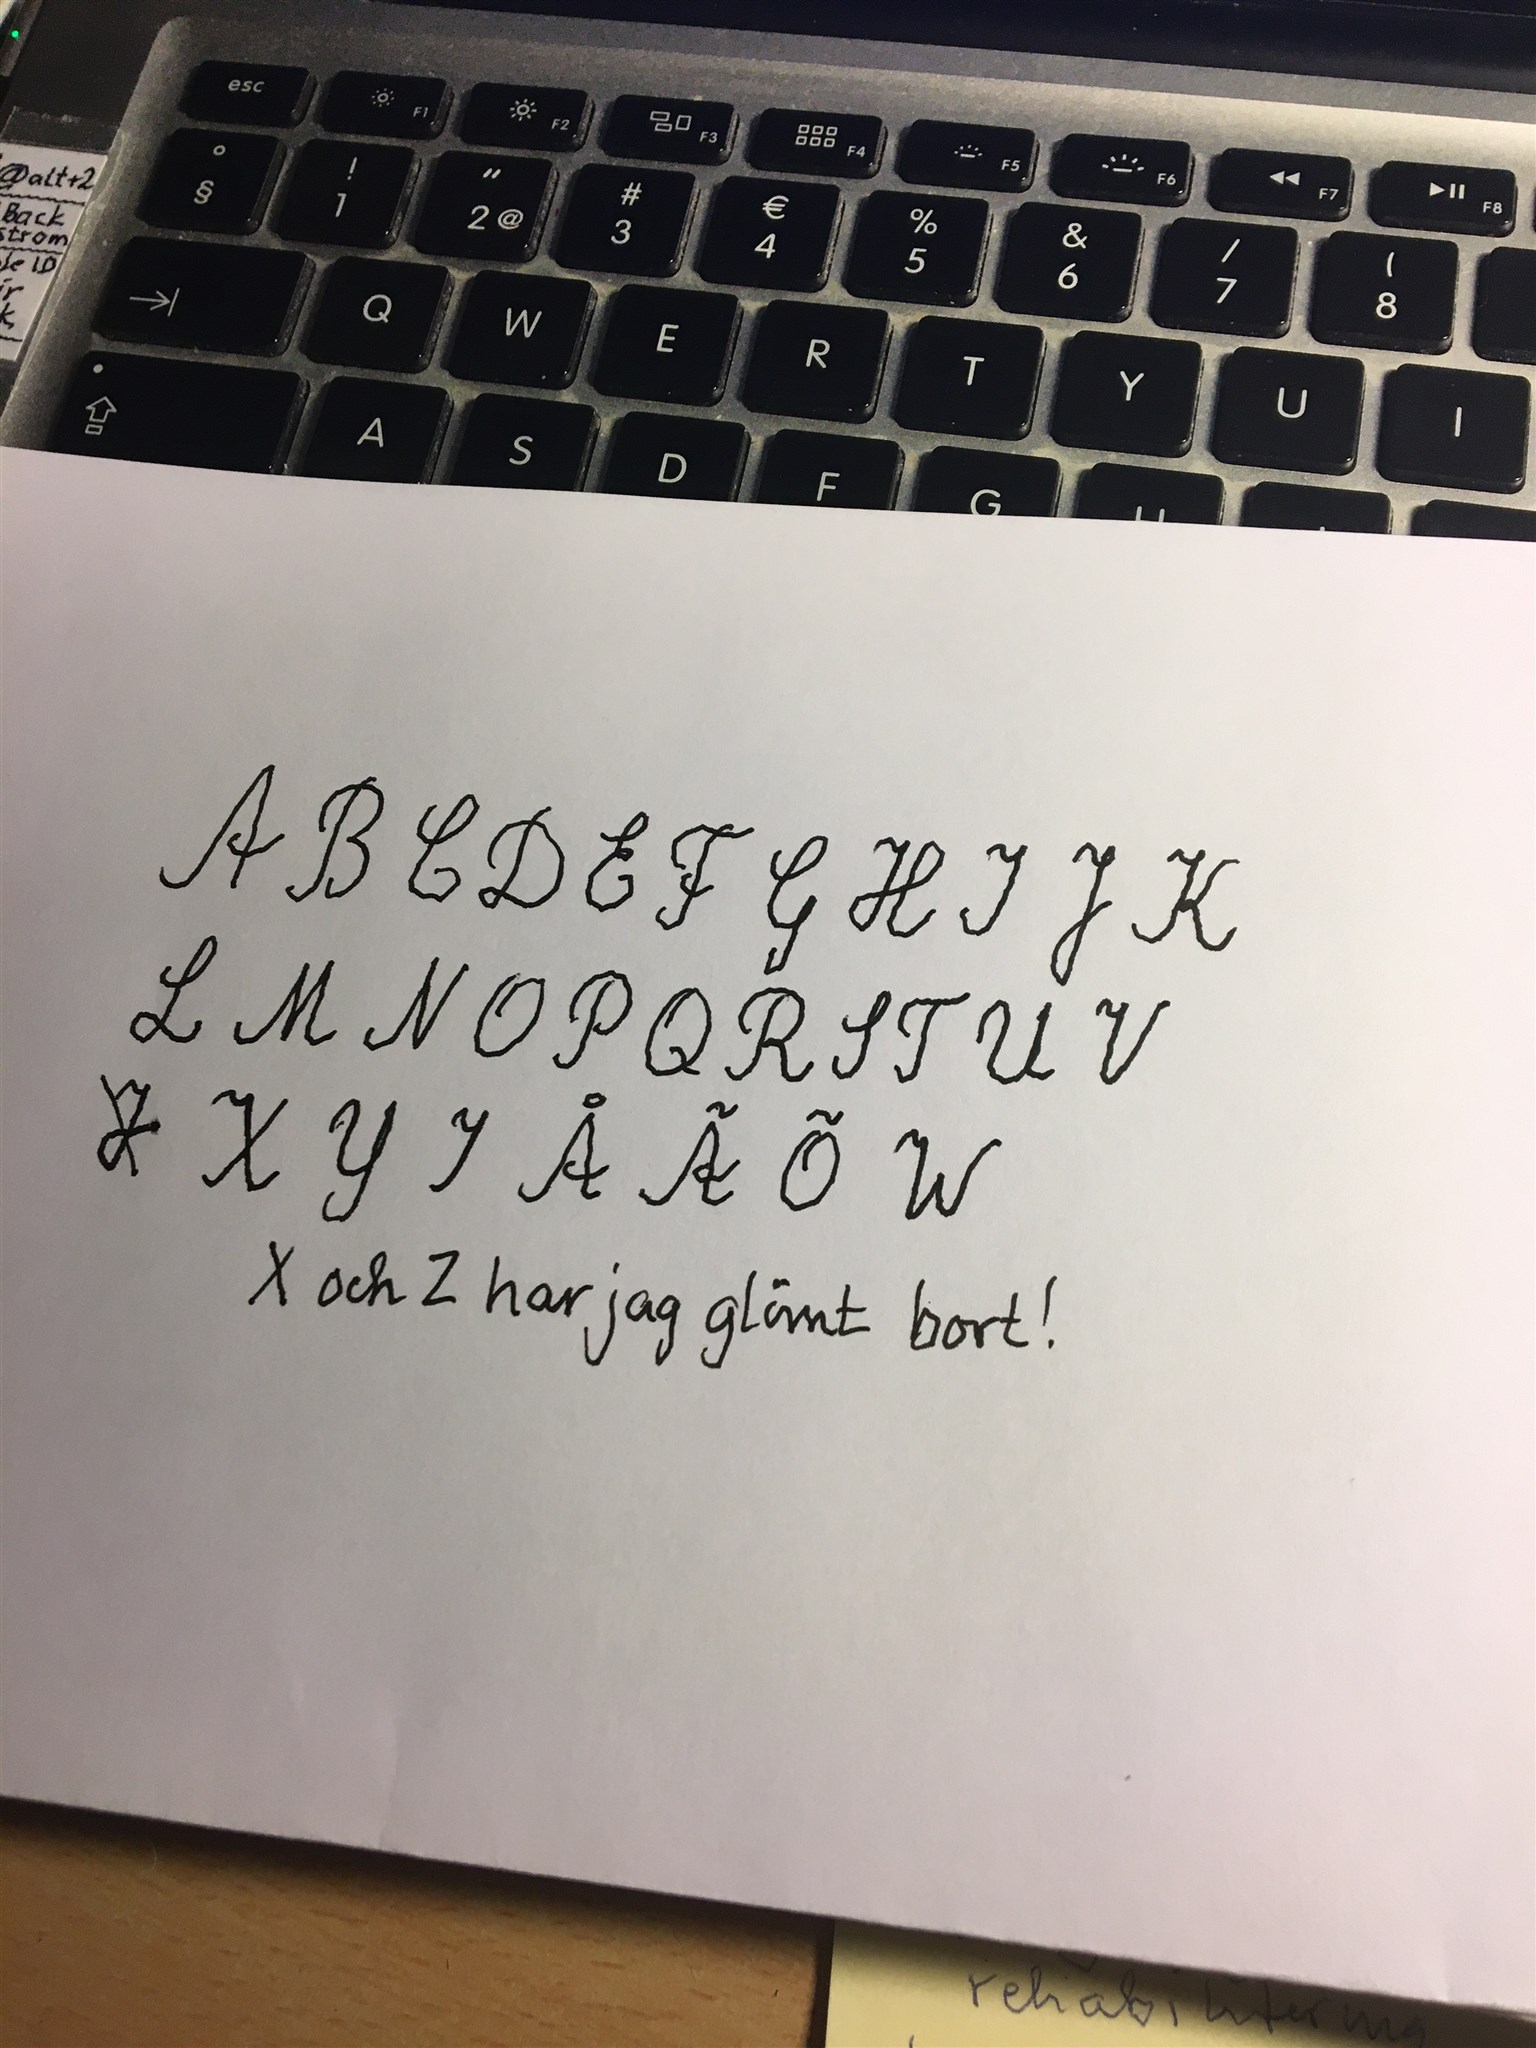 esc F1 F2 F3 F4 F5 F6 F7 F8
° § ! 1 " 2 @ # 3 € 4 % 5 & 6 / 7 ( 8
Q W E R T Y U I
A S D F G
@alt+2
Back
strom
ID
A B C D E F G H I J K
L M N O P Q R S T U V
X Y I Å Ã Õ W
X och Z har jag glömt bort!
rehabilitering